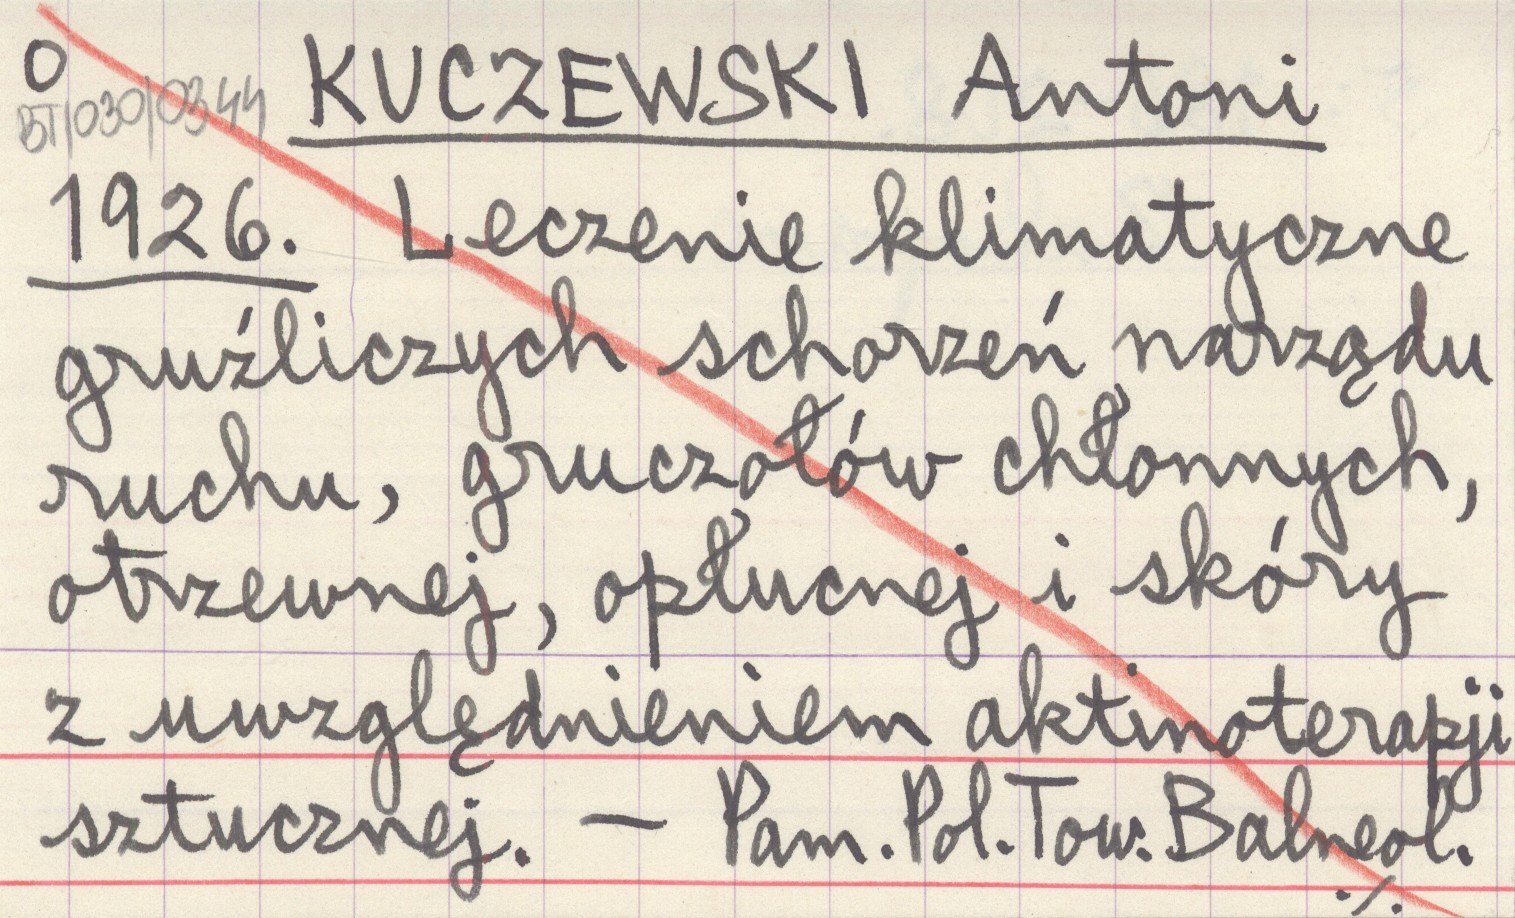 O KUCZEWSKI Antoni
BT/030/0344
1926. Leczenie klimatyczne
gruźliczych schorzeń narządu
ruchu, gruczołów chłonnych,
otrzewnej, opłucnej i skóry
z uwzględnieniem aktinoterapji
sztucznej. — Pam. Pol. Tow. Balneol.
./.